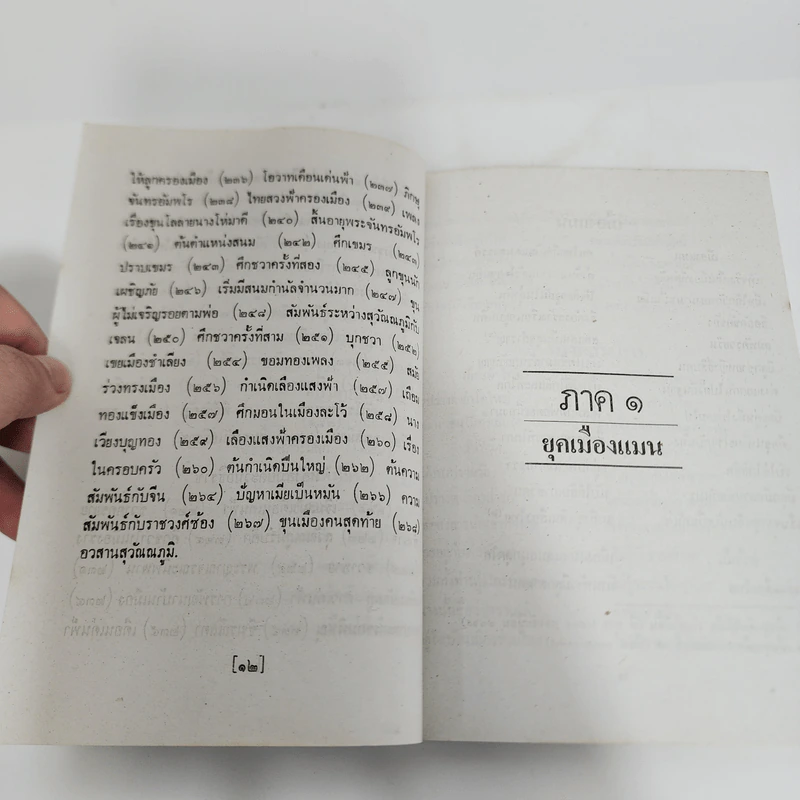 ให้ลูกครองเมือง (๒๓๖) โอวาทเดือนเด่นฟ้า (๒๓๗) ภิกษุ
จันทรอัมพโร (๒๓๘) ไทยสวงฟ้าครองเมือง (๒๓๙) เพลง
เรื่องขุนโลลายนางโห่มาคี (๒๔๐) สิ้นอายุพระจันทรอัมพโร
(๒๔๑) ต้นตำแหน่งสนม (๒๔๒) ศึกเขมร (๒๔๓)
ปราบเขมร (๒๔๓) ศึกชวาครั้งที่สอง (๒๔๕) ลูกขุนนัก
เผชิญภัย (๒๔๖) เริ่มมีสนมกำนัลจำนวนมาก (๒๔๗) ขุน
ผู้ไม่เจริญรอยตามพ่อ (๒๔๘) สัมพันธ์ระหว่างสุวัณณภูมิกับ
เจลน (๒๕๐) ศึกชวาครั้งที่สาม (๒๕๑) บุกชวา (๒๕๒)
เขยเมืองชำเลียง (๒๕๔) ขอมทองเพลง (๒๕๕) สมัย
ร่วงทรงเมือง (๒๕๖) กำเนิดเลืองแสงฟ้า (๒๕๗) เถียม
ทองแข็งเมือง (๒๕๗) ศึกมอนในเมืองละโว้ (๒๕๘) นาง
เวียงบุญทอง (๒๕๙) เลืองแสงฟ้าครองเมือง (๒๖๐) เรื่อง
ในครอบครัว (๒๖๐) ต้นกำเนิดปืนใหญ่ (๒๖๒) ต้นความ
สัมพันธ์กับจีน (๒๖๔) ปัญหาเมียเป็นหมัน (๒๖๖) ความ
สัมพันธ์กับราชวงศ์ซ้อง (๒๖๗) ขุนเมืองคนสุดท้าย (๒๖๘)
อวสานสุวัณณภูมิ.
[๑๒]
ภาค ๑
ยุคเมืองแมน